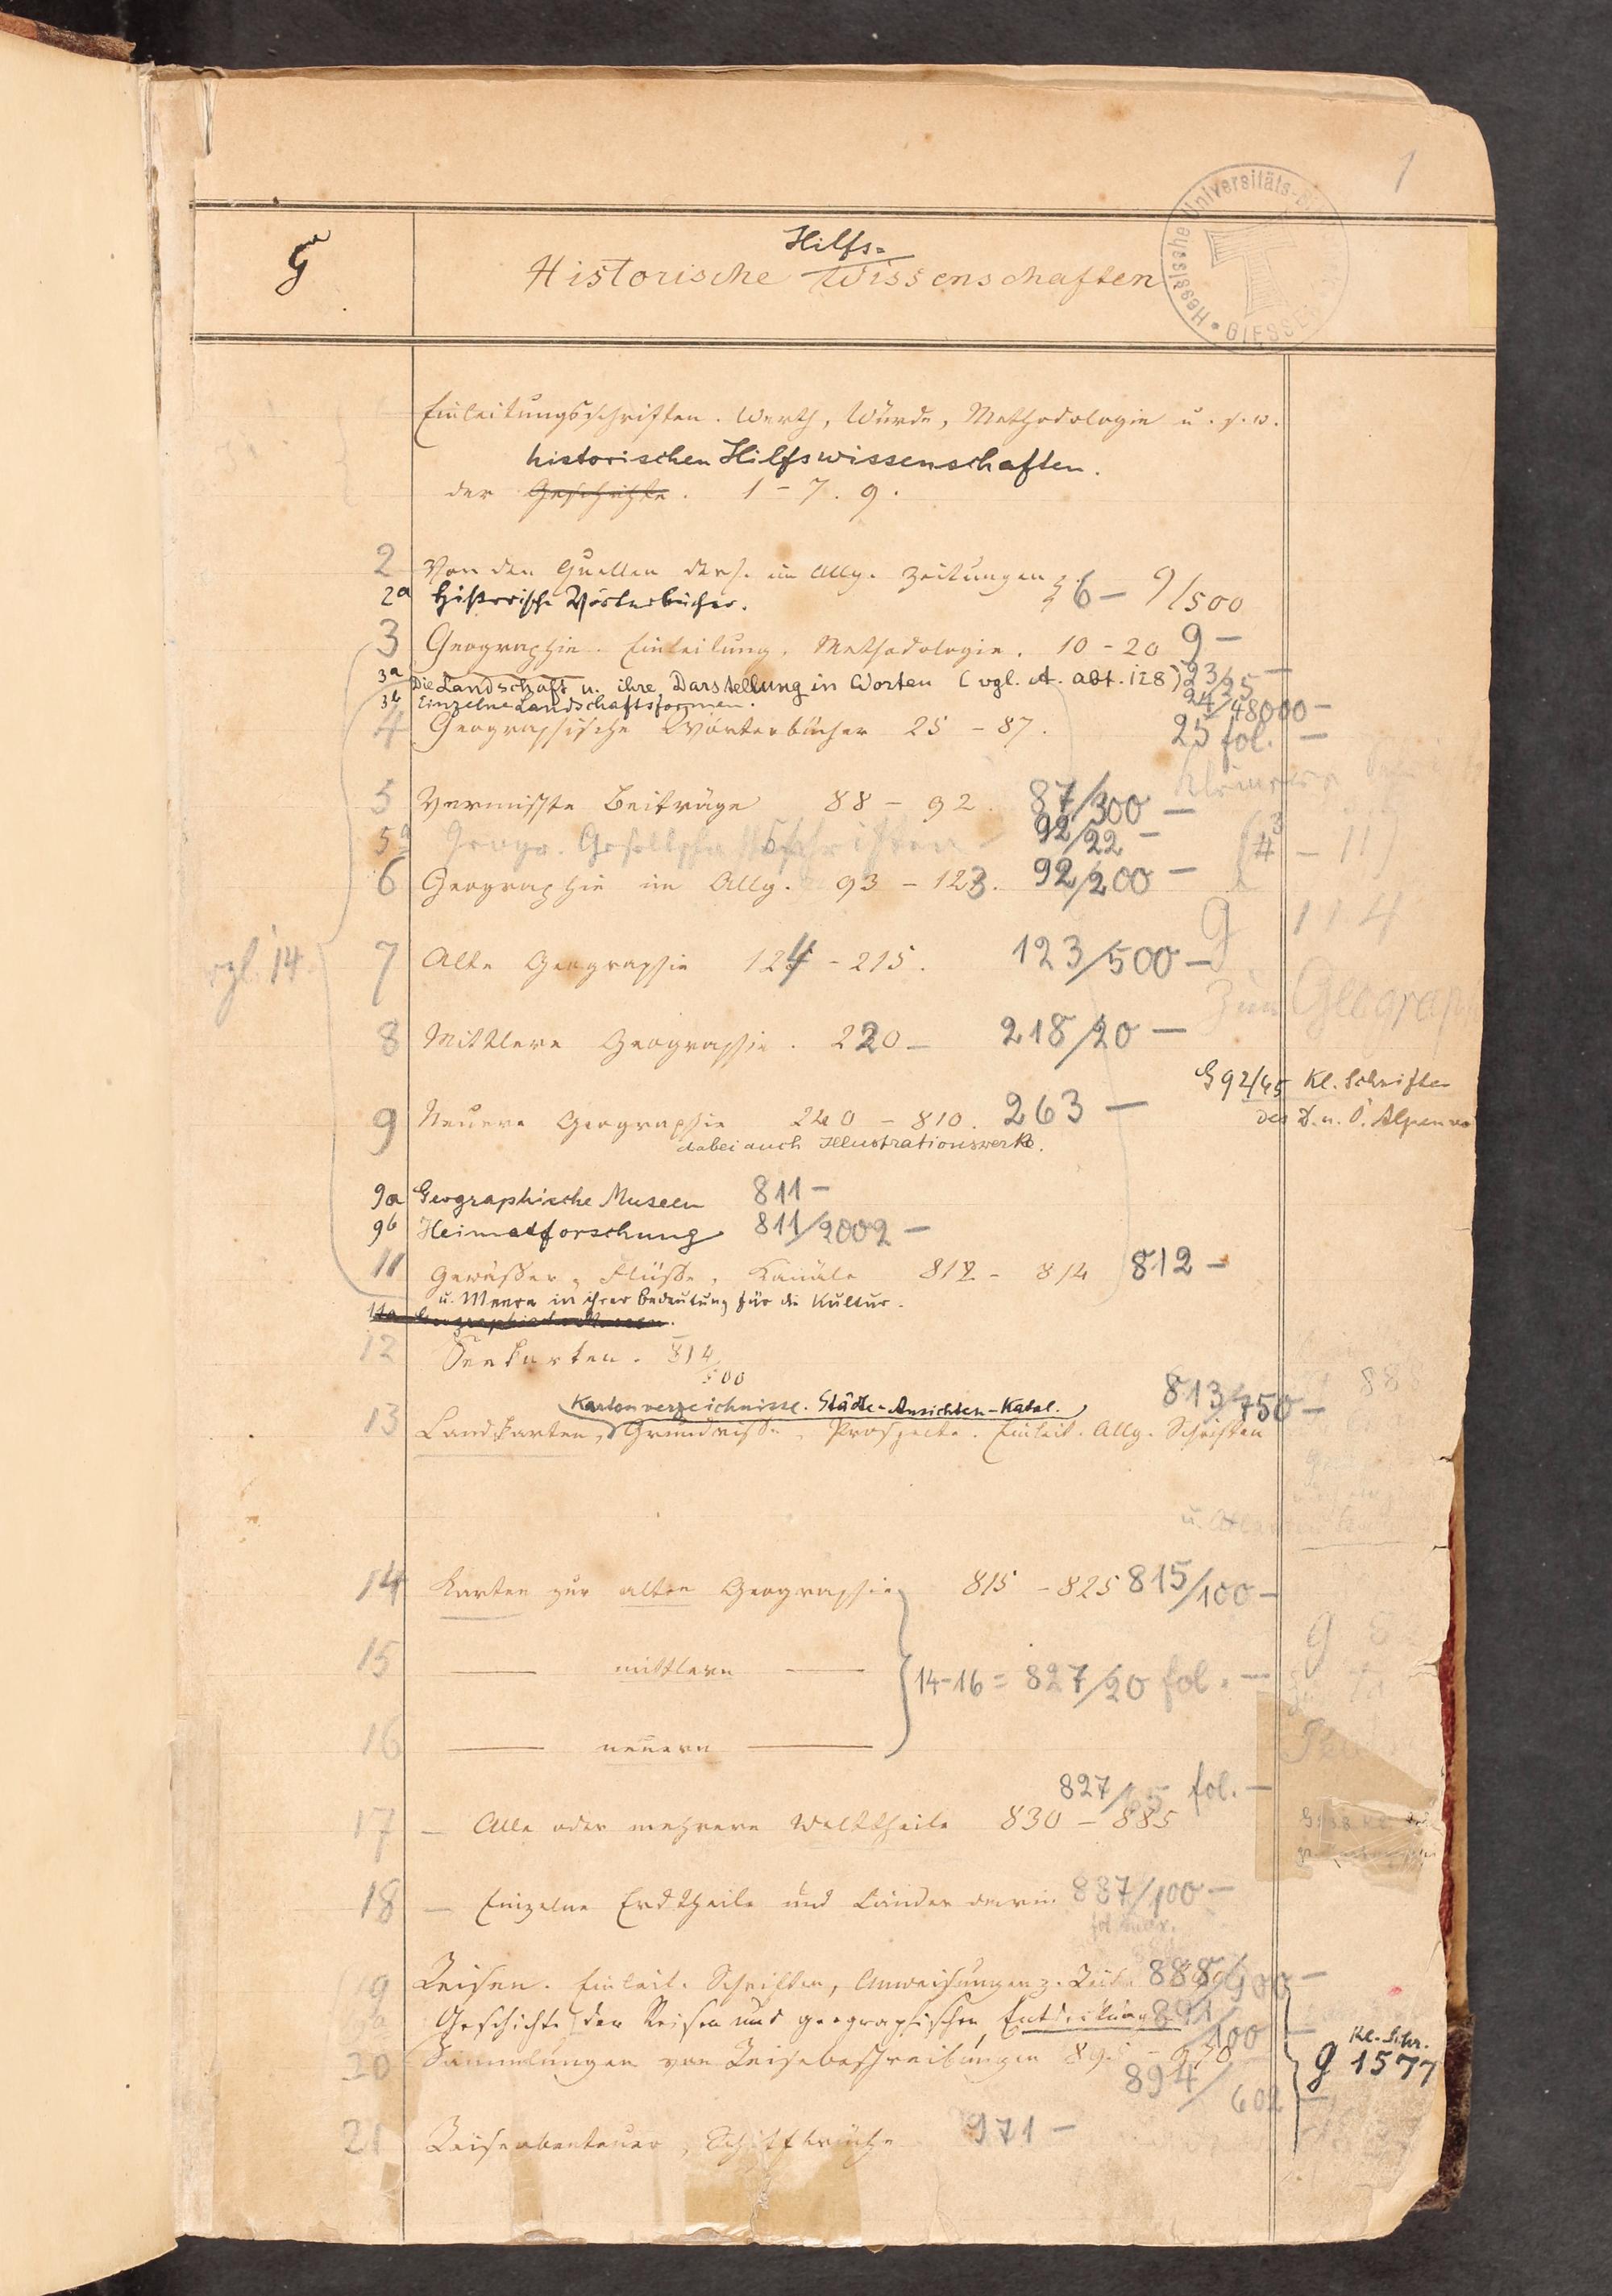 1
Hessische Universitäts-Bi
GIESSEN
G
Hilfs=
Historische Wissenschaften
Einleitungsschriften. Werth, Würde, Methodologie u. s. w.
historischen Hilfswissenschaften.
der Geschichte. 1 - 7. 9.
2 Von den Quellen ders. im Allg. Zeitungen 6 - 9/500
2a Historische Wörterbücher.
3 Geographie. Einleitung, Methodologie. 10 - 20 9 -
3a Die Landschaft u. ihre Darstellung in Worten (vgl. A. Abt. 128) 23/25 -
3b Einzelne Landschaftsformen. 24/48000 -
4 Geographische Wörterbücher 25 - 87. 25 fol. -
5 Vermischte Beiträge 88 - 92. 87/300 -
5a Geogr. Gesellschaftsschriften 92/22 -
6 Geographie im Allg. 93 - 123. 92/200 -
g 114
vgl. 14
7 Alte Geographie 124 - 215. 123/500 -
Zur Geograp
8 Mittlere Geographie. 220 - 218/20 -
G 92/45 Kl. Schriften
des D. u. Ö. Alpenve
9 Neuere Geographie 240 - 810. 263 -
dabei auch Illustrationswerke.
9a Geographische Museen 811 -
9b Heimatforschung 811/2002 -
11 Gewässer, Flüsse, Kanäle 812 - 814 812 -
u. Meere in ihrer Bedeutung für die Kultur.
11a Geographische Museen.
12 Seekarten. 814/500
Kartenverzeichnisse. Städte-Ansichten-Katal. 813/750 -
13 Landkarten, Grundrisse, Prospecte. Einleit. Allg. Schriften
14 Karten zur alten Geographie 815 - 825 815/100 -
15 — mittlern —
14-16 = 827/20 fol. -
16 — neuern —
827/65 fol. -
17 - Alle oder mehrere Welttheile 830 - 885
18 - Einzelne Erdtheile und Länder darin 887/100 -
19 Reisen. Einleit. Schriften, Anweisungen z. Reisen 888/900 -
Geschichte der Reisen und geographischen Entdeckungen 891/100 -
Kl. Schr.
g 1577
20 Sammlungen von Reisebeschreibungen 970
894/602 -
21 Reiseabenteuer, Schiffbrüche 971 -